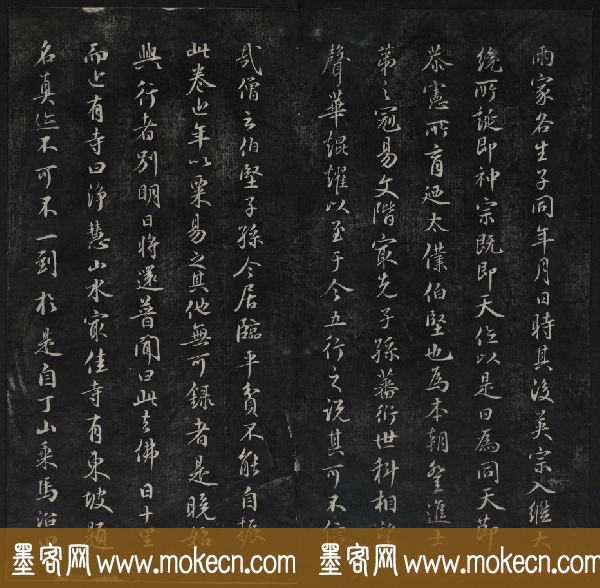 兩家各生子同年月日時其後英宗入繼大
統所誕即神宗既即天位以是日為同天節
恭憲所育廼太僕伯堅也為本朝登進士
第之冠易文階寂先子孫蕃衍世科相
聲華焜耀以至于今五行之說其可不信
哉僧云伯堅子孫今居臨平貧不能自振
此卷近年以粟易之其他無可録者是晚始
與行者別明日將還普聞曰此去佛日十里
而近有寺曰淨慧山水寂佳寺有東坡題
名真迹不可不一到於是自丁山乘馬沿
墨客网 www.mokecn.com 墨客网 www.mokecn.com